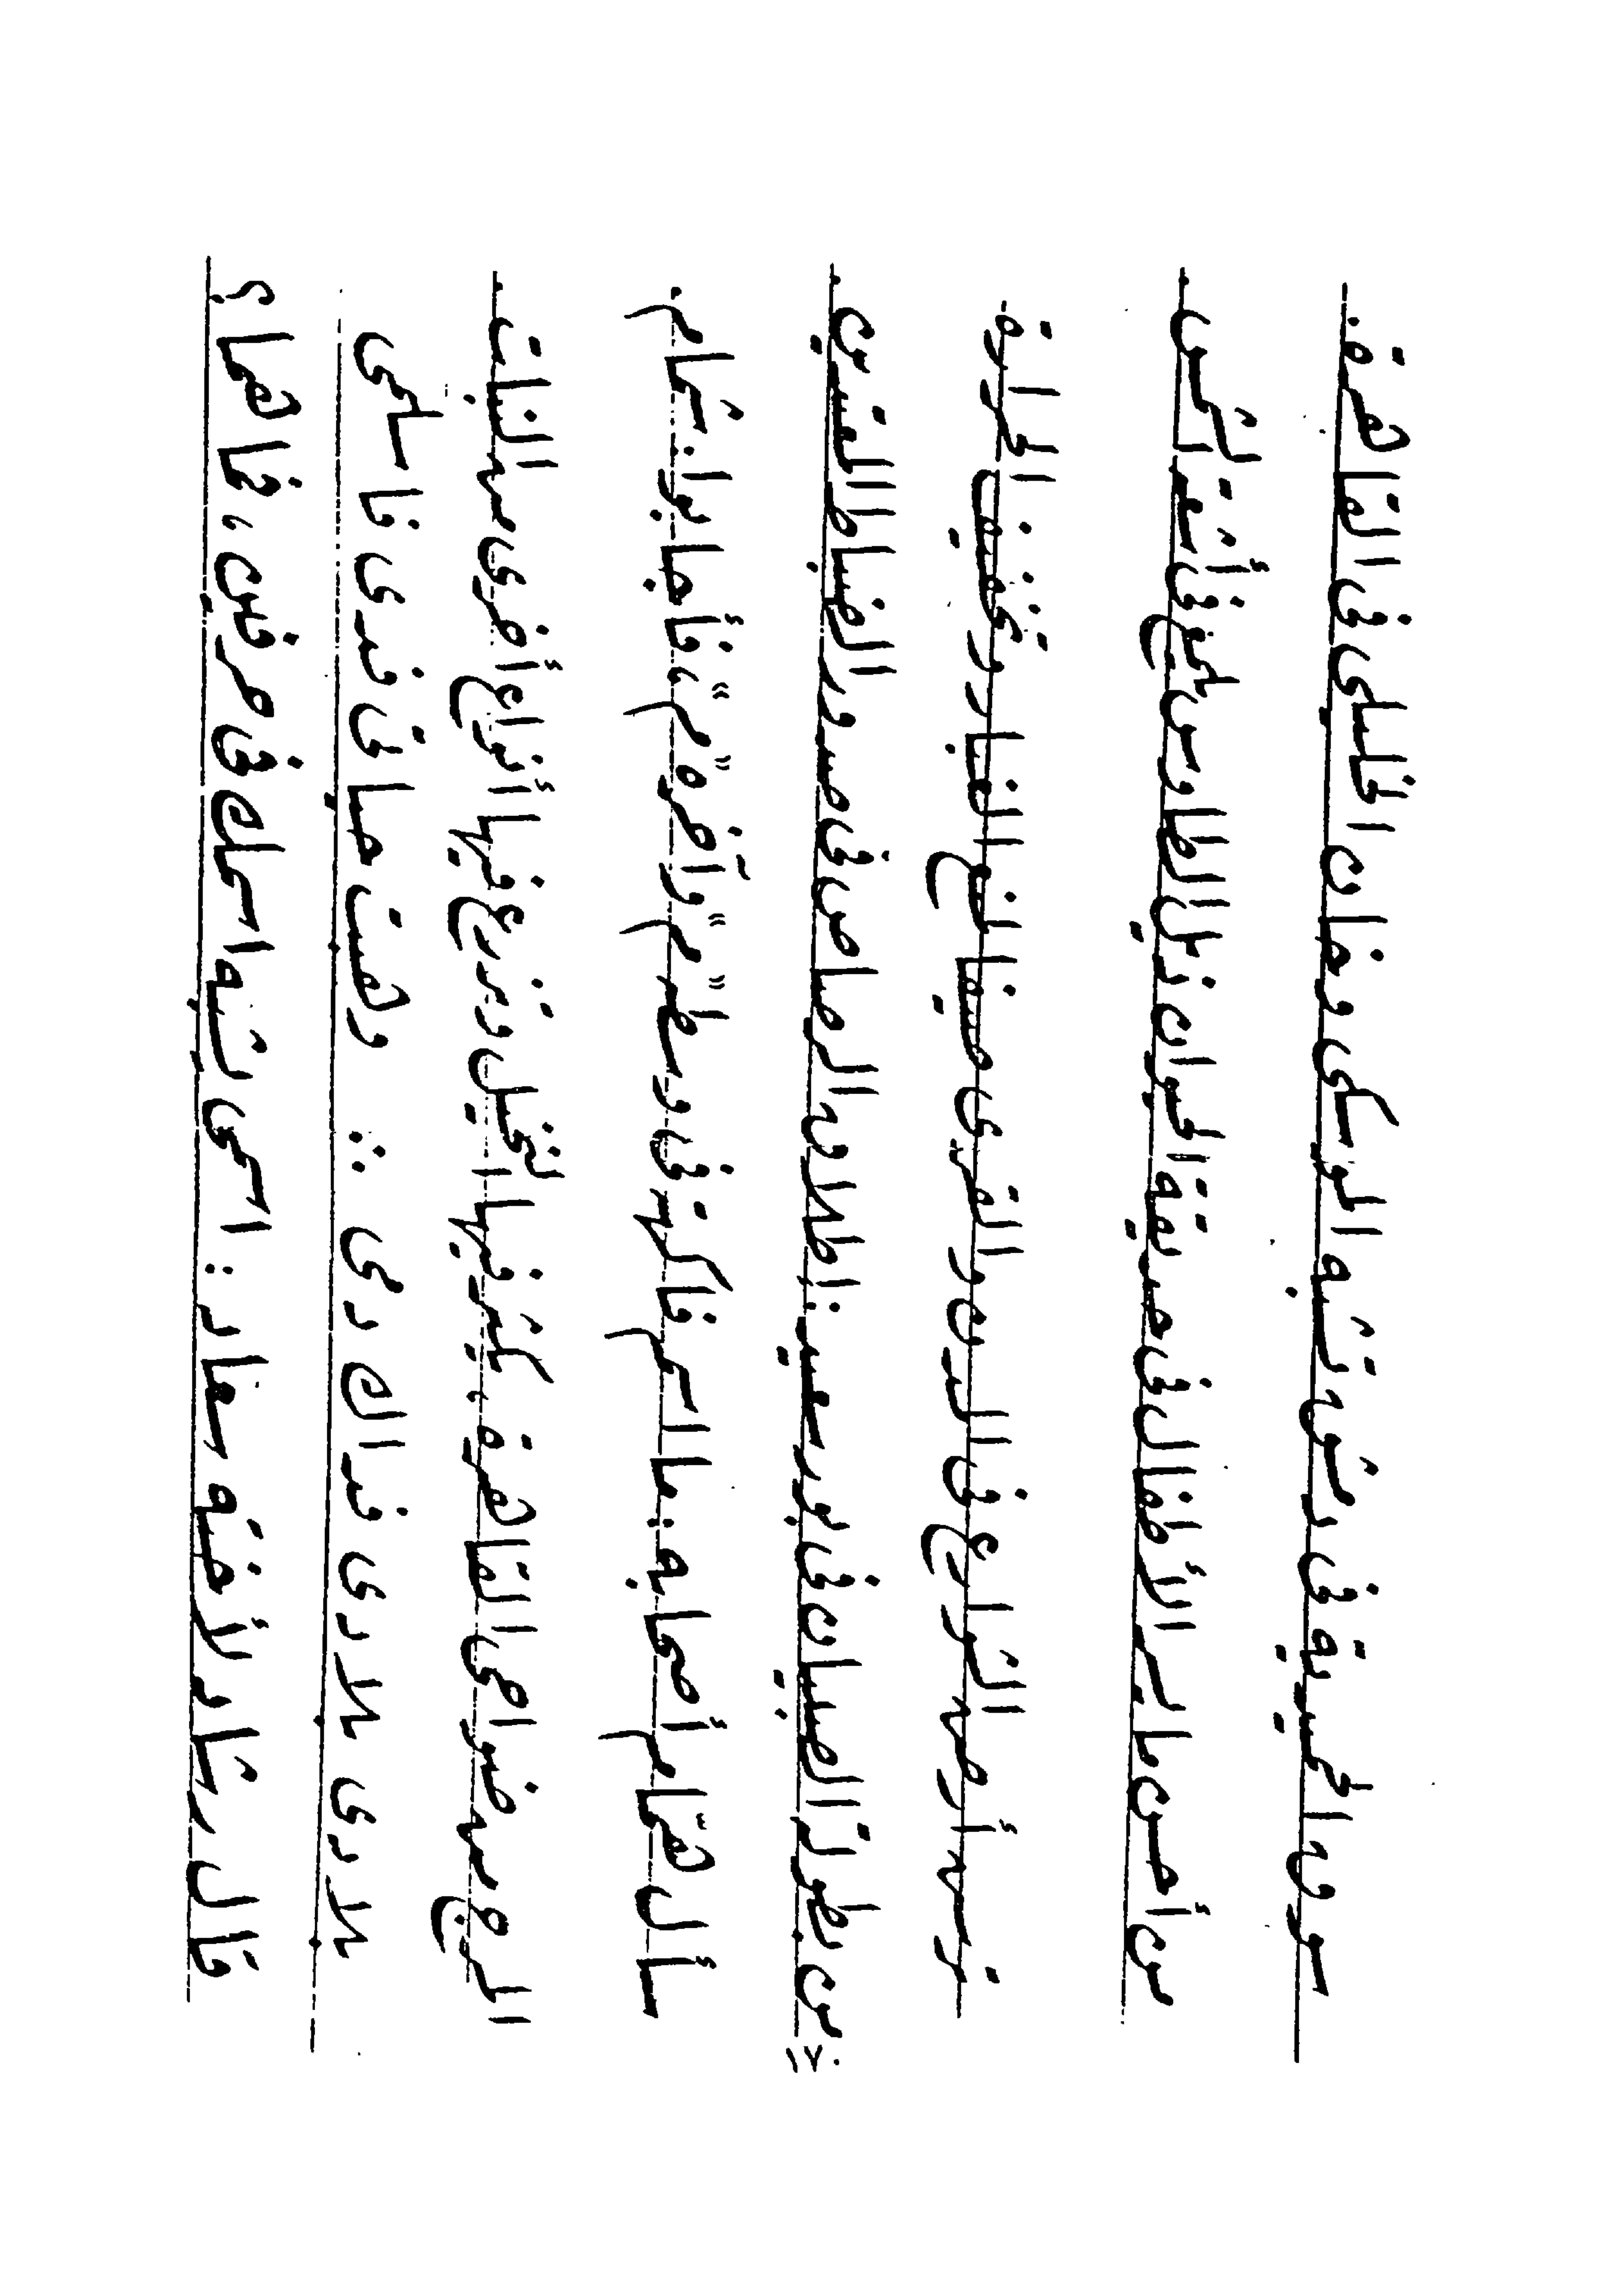 سوق الحميدية فى دمشق تشبه الموسكى وخان الخليلى فى القاهرة.
من أحسن ما يسر الأطفال فى حديقة الحيوان ذيل الطاوس يلمع فى أشعة الشمس.
ترش أرض الشوارع فى المدن والقرى صيفا لمنع الغبار وتخفيف الحرارة.
من بطولة الصبيان فى بورسعيد : إطلاق الرصاص فى صدور الضباط المعتدين.
سأل هشام أصحابه : ما اسم فاكهة فى وسطه "م" وآخره "م"، فأجابوا. شمام.
المرج من ضواحى القاهرة ، يكثر فيها النخيل وتزرع فيها أنواع أخرى من النبات.
بلادى بلادى فداك دمى .. وهبت حياتى فدى فاسلمى
قال رشاد لأخته سعاد : اسمى يشبه اسمك فى حرفين ، فما هما؟